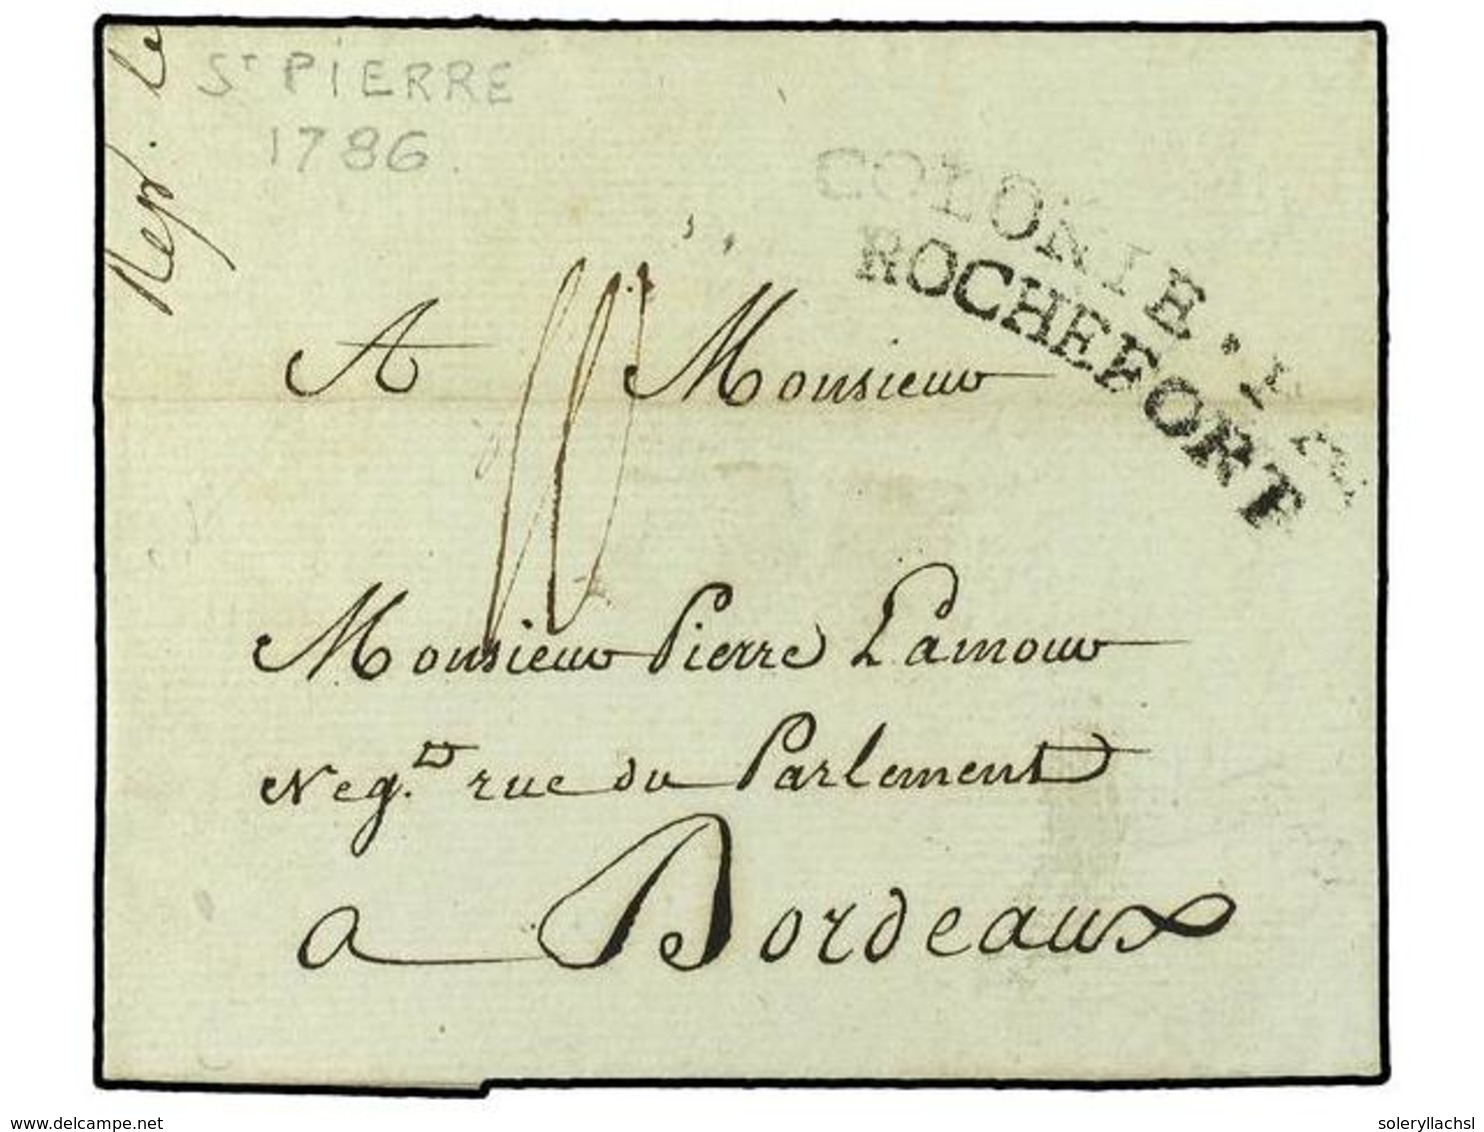 Rep. le
St PIERRE
1786
COLONIE.PAR
ROCHEFORT
A Monsieur
Monsieur Pierre Lamour
Neg.t rue du Parlement
a Bordeaux
www.delcampe.net
soleryllachsl